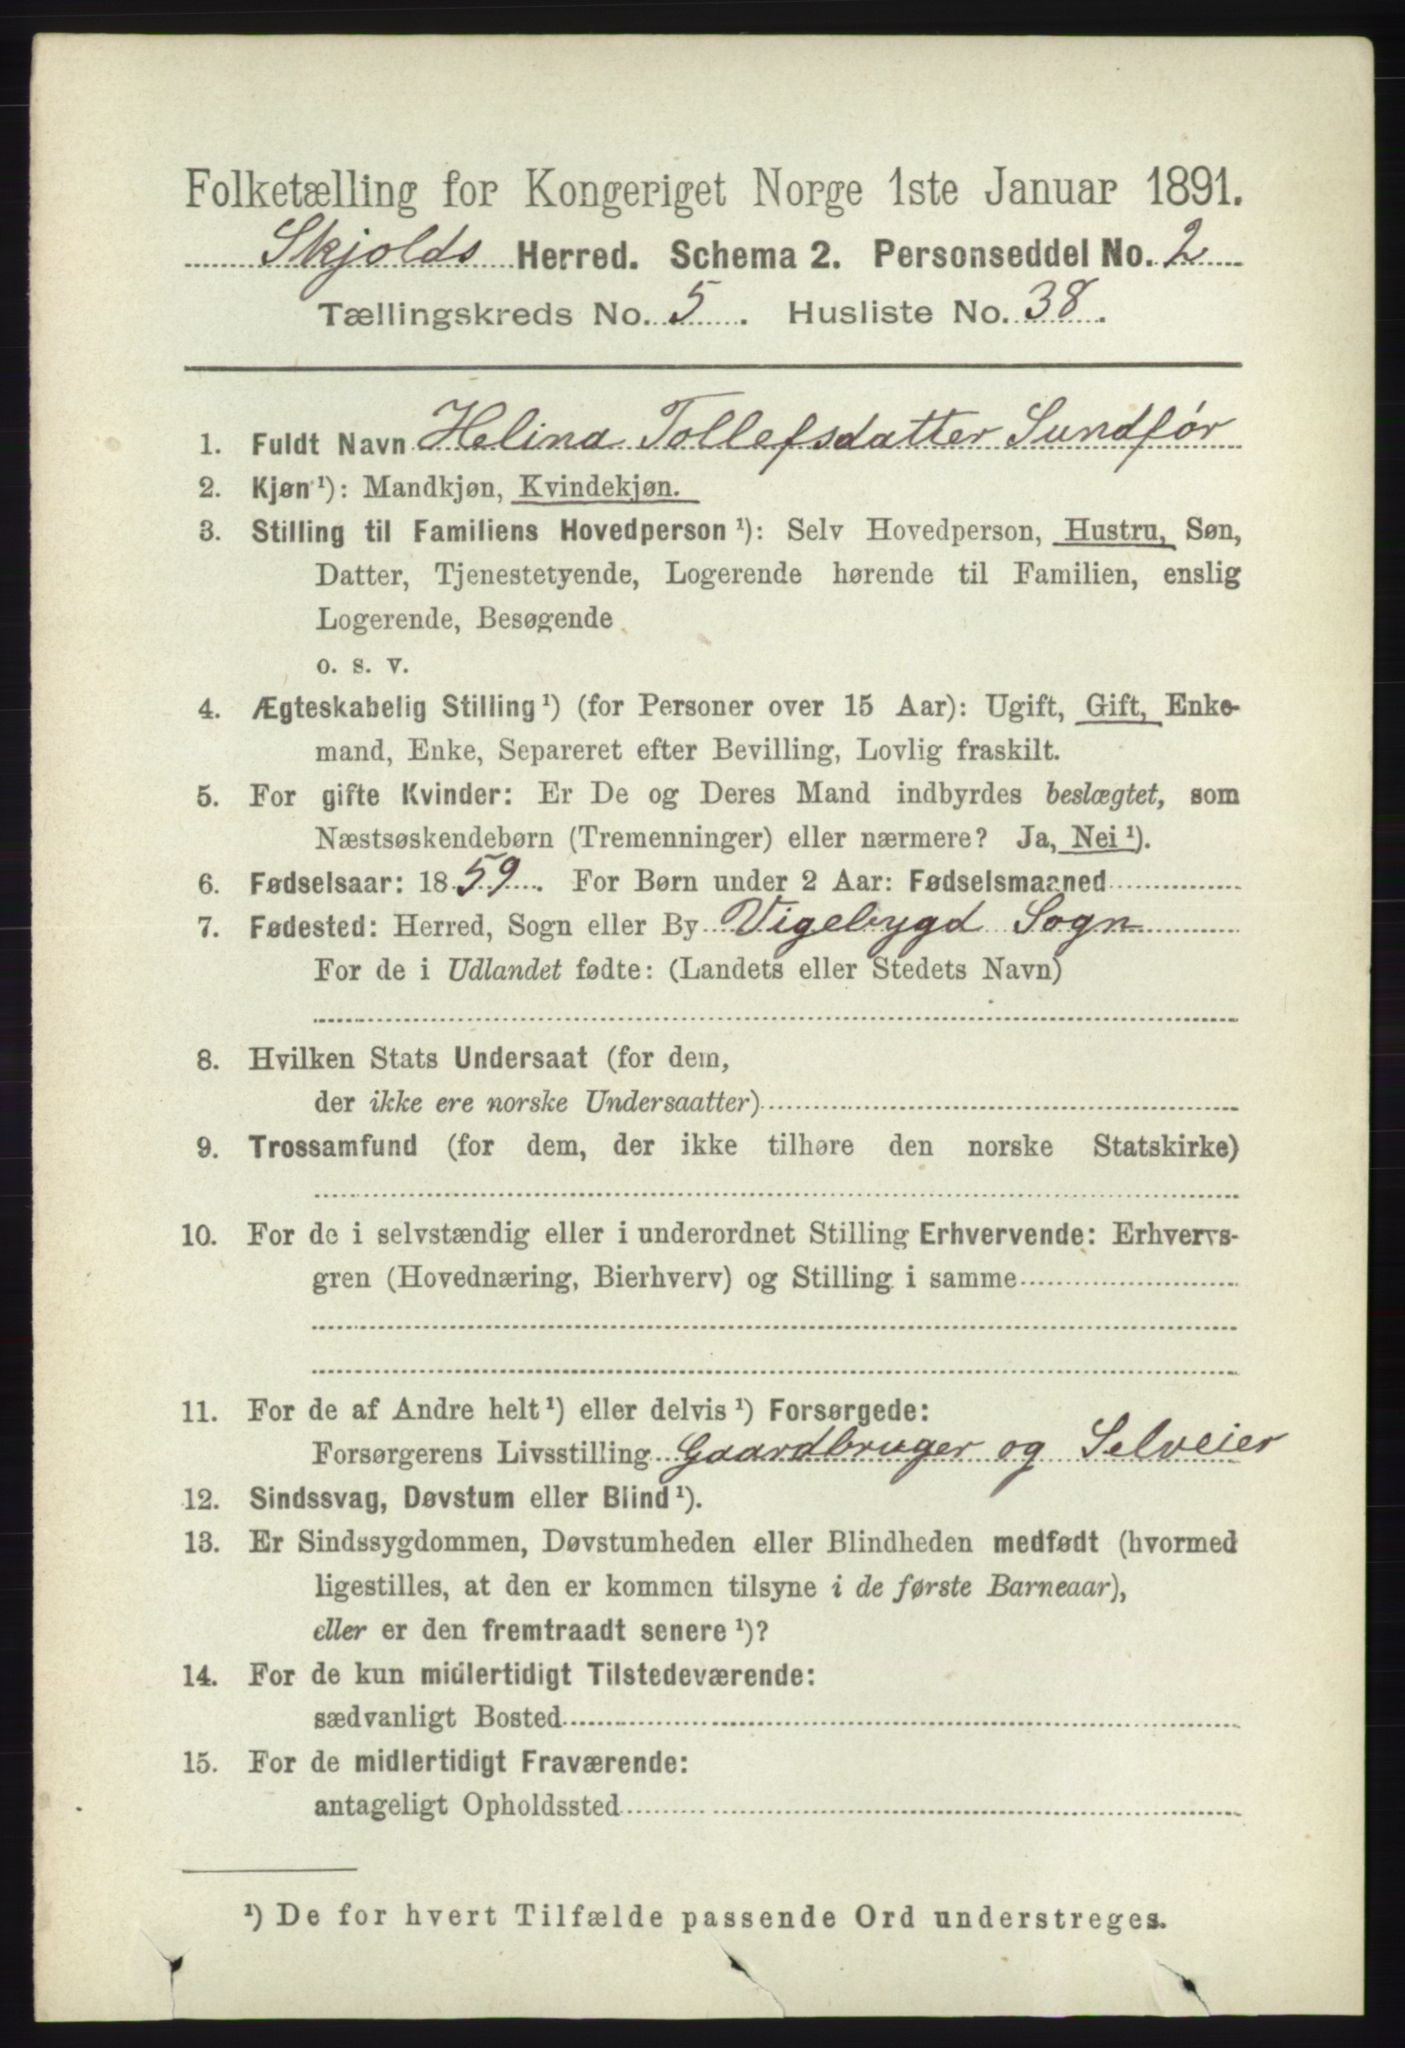 Folketælling for Kongeriget Norge 1ste Januar 1891.
Skjolds Herred. Schema 2. Personseddel No. 2
Tællingskreds No. 5. Husliste No. 38.
1. Fuldt Navn Helina Tollefsdatter Sundfør
2. Kjøn¹): Mandkjøn, Kvindekjøn.
3. Stilling til Familiens Hovedperson¹): Selv Hovedperson, Hustru, Søn,
Datter, Tjenestetyende, Logerende hørende til Familien, enslig
Logerende, Besøgende
o. s. v.
4. Ægteskabelig Stilling¹) (for Personer over 15 Aar): Ugift, Gift, Enke-
mand, Enke, Separeret efter Bevilling, Lovlig fraskilt.
5. For gifte Kvinder: Er De og Deres Mand indbyrdes beslægtet, som
Næstsøskendebørn (Tremenninger) eller nærmere? Ja, Nei¹).
6. Fødselsaar: 1859. For Børn under 2 Aar: Fødselsmaaned
7. Fødested: Herred, Sogn eller By Vigebygd Sogn
For de i Udlandet fødte: (Landets eller Stedets Navn)
8. Hvilken Stats Undersaat (for dem,
der ikke ere norske Undersaatter)
9. Trossamfund (for dem, der ikke tilhøre den norske Statskirke)
10. For de i selvstændig eller i underordnet Stilling Erhvervende: Erhvervs-
gren (Hovednæring, Bierhverv) og Stilling i samme
11. For de af Andre helt¹) eller delvis¹) Forsørgede:
Forsørgerens Livsstilling Gaardbruger og Selveier
12. Sindssvag, Døvstum eller Blind¹).
13. Er Sindssygdommen, Døvstumheden eller Blindheden medfødt (hvormed
ligestilles, at den er kommen tilsyne i de første Barneaar),
eller er den fremtraadt senere¹)?
14. For de kun midlertidigt Tilstedeværende:
sædvanligt Bosted
15. For de midlertidigt Fraværende:
antageligt Opholdssted
¹) De for hvert Tilfælde passende Ord understreges.